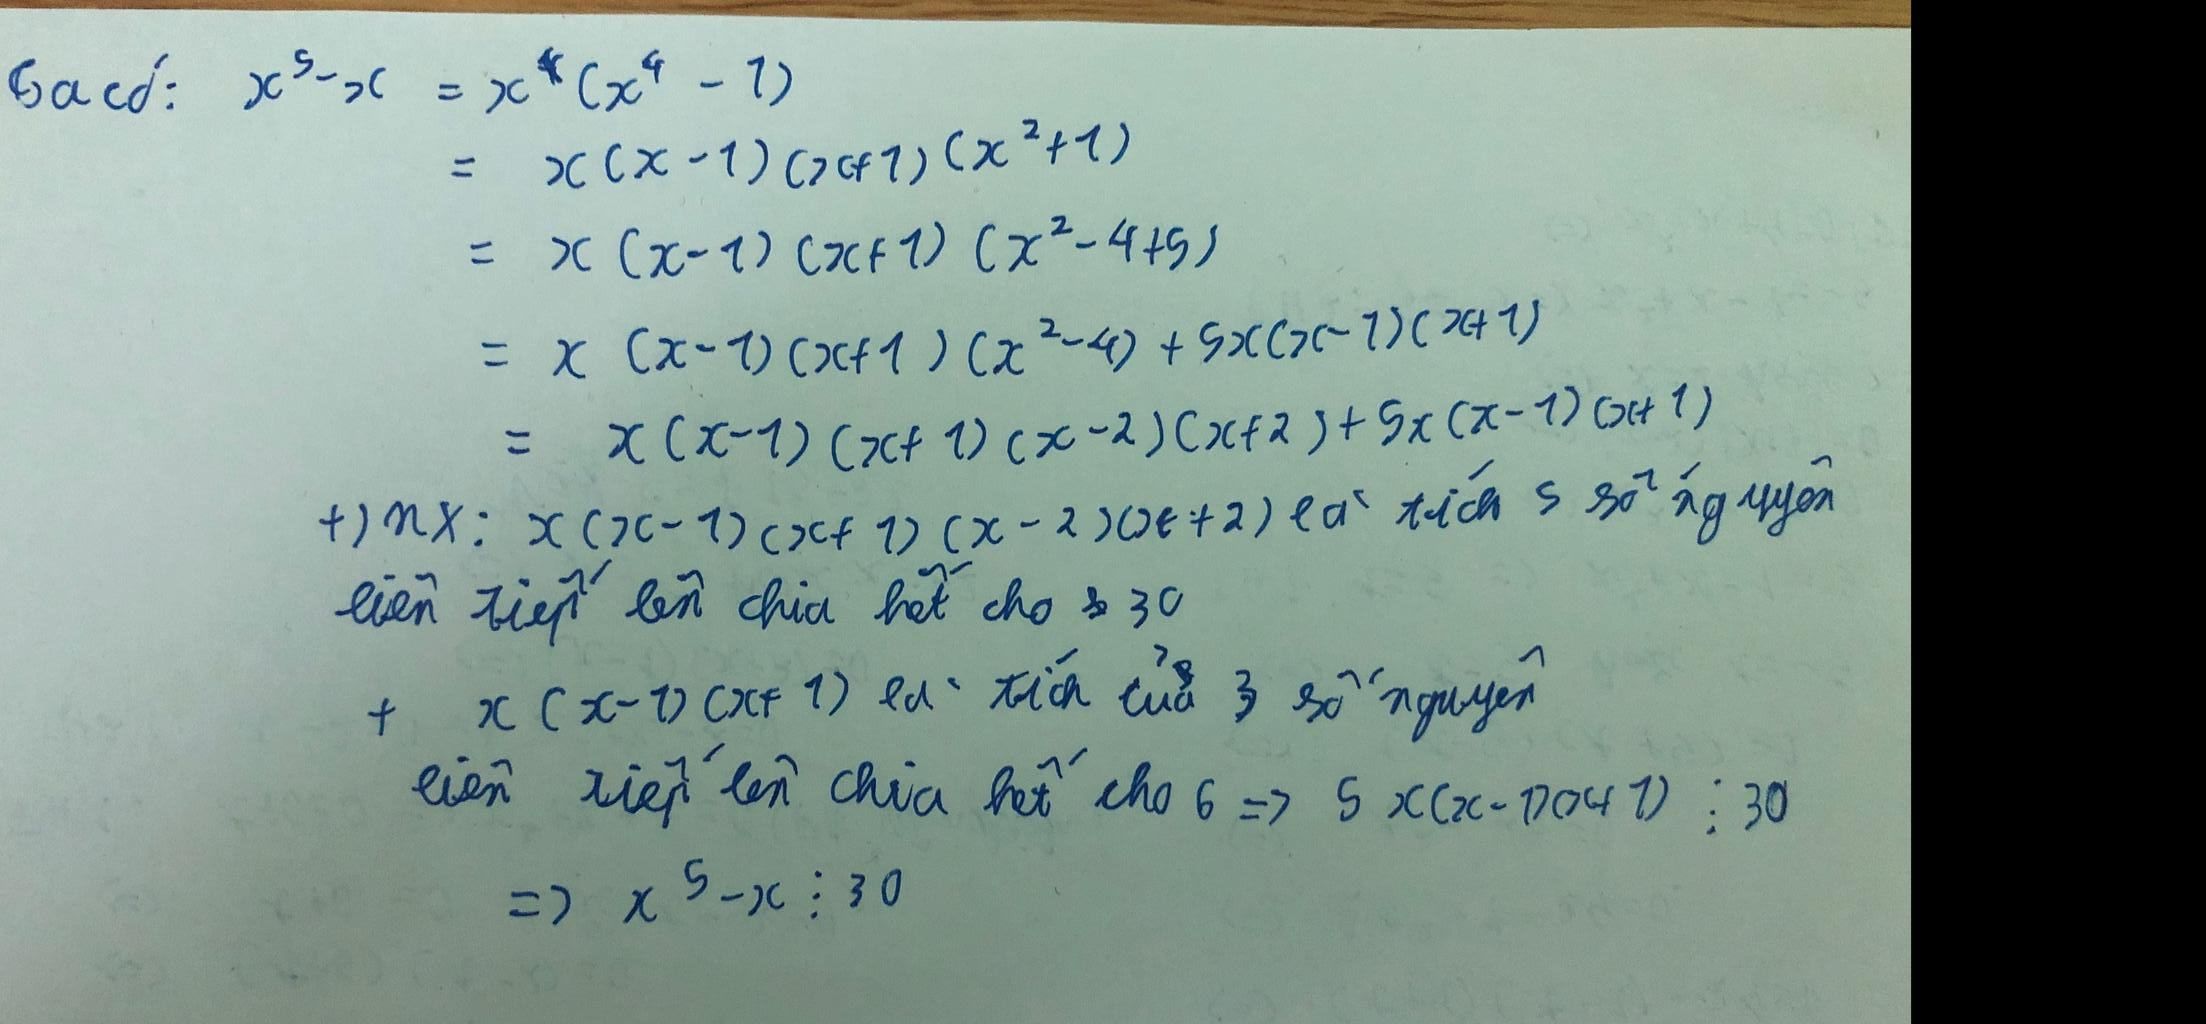 Ta có: x⁵-x = x(x⁴ - 1)
= x(x-1)(x+1)(x²+1)
= x(x-1)(x+1)(x²-4+5)
= x(x-1)(x+1)(x²-4)+5x(x-1)(x+1)
= x(x-1)(x+1)(x-2)(x+2)+5x(x-1)(x+1)
+) NX: x(x-1)(x+1)(x-2)(x+2) là tích 5 số nguyên
liên tiếp lên chia hết cho 30
+ x(x-1)(x+1) là tích của 3 số nguyên
liên tiếp lên chia hết cho 6 => 5x(x-1)(x+1) ⋮ 30
=> x⁵-x ⋮ 30